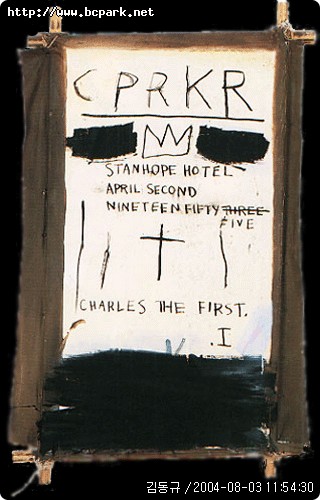 http://www.bcpark.net
CPRKR
STANHOPE HOTEL
APRIL SECOND
NINETEEN FIFTY THREE
FIVE
CHARLES THE FIRST.
.I
김동규 / 2004-08-03 11:54:30